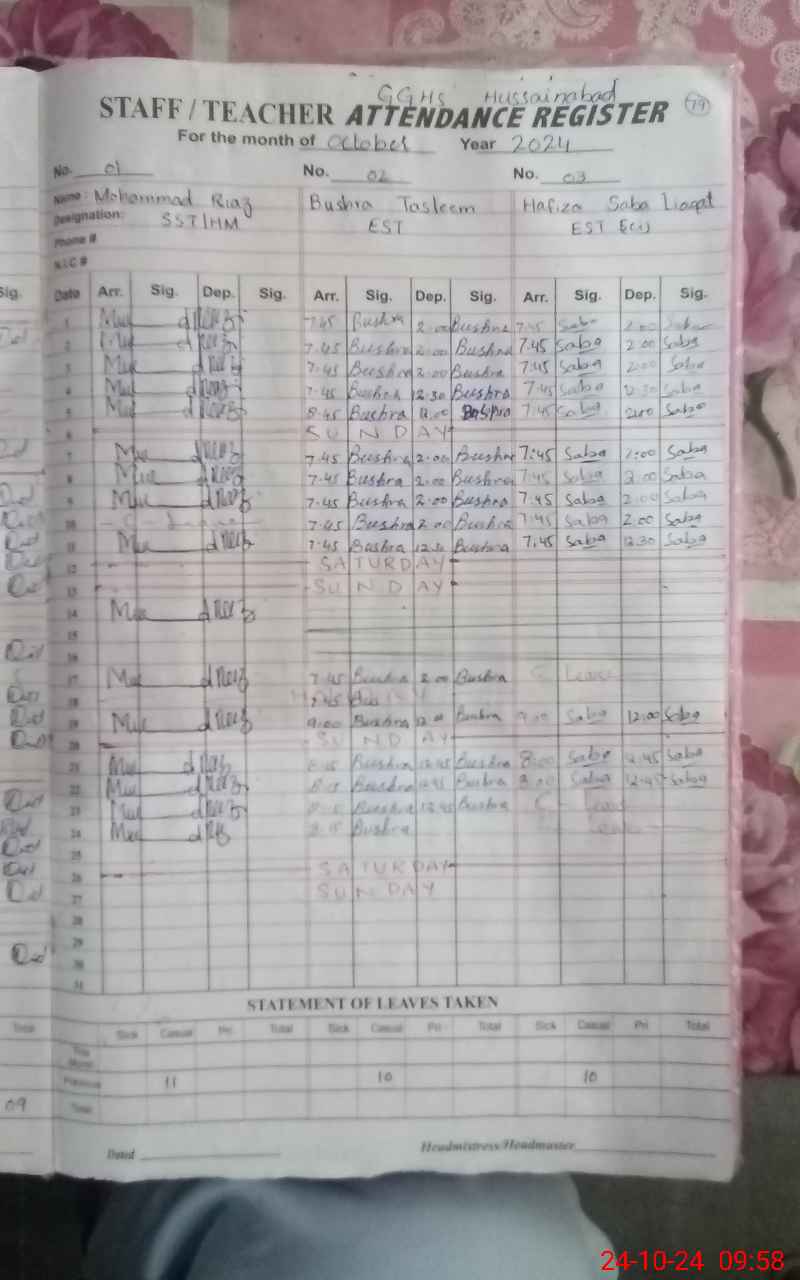 GGHS Hussainabad
STAFF / TEACHER ATTENDANCE REGISTER 79
For the month of October Year 2024
No. 01 No. 02 No. 03
Name: Mohammad Riaz Bushra Tasleem Hafiza Saba Liaqat
Designation: SST/HM EST EST
Phone #
N.I.C #
Sig. Date Arr. Sig. Dep. Sig. Arr. Sig. Dep. Sig. Arr. Sig. Dep. Sig.
1 7.45 Bushra 2.00 Bushra 7.45 Saba 2.00 Saba
2 7.45 Bushra 2.00 Bushra 7.45 Saba 2.00 Saba
3 7.45 Bushra 2.00 Bushra 7.45 Saba 2.00 Saba
4 7.45 Bushra 12.30 Bushra 7.45 Saba 12.30 Saba
5 8.45 Bushra 7.45 Saba Saba
6 SUNDAY
7 7.45 Bushra 2.00 Bushra 7:45 Saba 2:00 Saba
8 7.45 Bushra 2.00 Bushra 7.45 Saba 2.00 Saba
9 7.45 Bushra 2.00 Bushra 7.45 Saba 2.00 Saba
10 7.45 Bushra 2.00 Bushra 7.45 Saba 2.00 Saba
11 7.45 Bushra 12.30 Bushra 7.45 Saba 12.30 Saba
12 SATURDAY
13 SUNDAY
14
15
16
17 7.45 Bushra 2.00 Bushra C Leave
18
19 9:00 Bushra 12.00 Bushra 9.00 Saba 12:00 Saba
20 SUNDAY
21 8.15 Bushra 12.45 Bushra 8:00 Saba 12.45 Saba
22 8.15 Bushra 12.45 Bushra 8.00 Saba 12.45 Saba
23 8.15 Bushra 12.45 Bushra C- Leave
24 8.15 Bushra Leave
25
26 SATURDAY
27 SUNDAY
28
29
30
31
STATEMENT OF LEAVES TAKEN
Total Sick Casual Pri Total Sick Casual Pri Total Sick Casual Pri Total
This Month
Previous 11 10 10
09 Total
Dated Headmistress/Headmaster
24-10-24 09:58